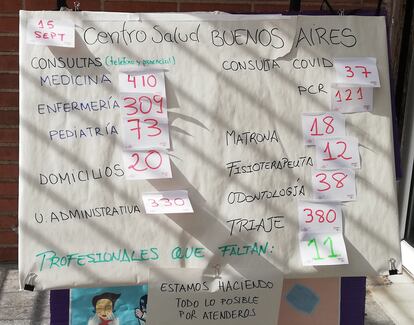 15
SEPT
Centro Salud BUENOS AIRES
CONSULTAS (telefono y presencial)
MEDICINA 410
ENFERMERÍA 309
PEDIATRÍA 73
DOMICILIOS 20
U. ADMINISTRATIVA 330
CONSULTA COVID 37
PCR 121
MATRONA 18
FISIOTERAPEUTA 12
ODONTOLOGÍA 38
TRIAJE 380
PROFESIONALES QUE FALTAN: 11
ESTAMOS HACIENDO
TODO LO POSIBLE
POR ATENDEROS